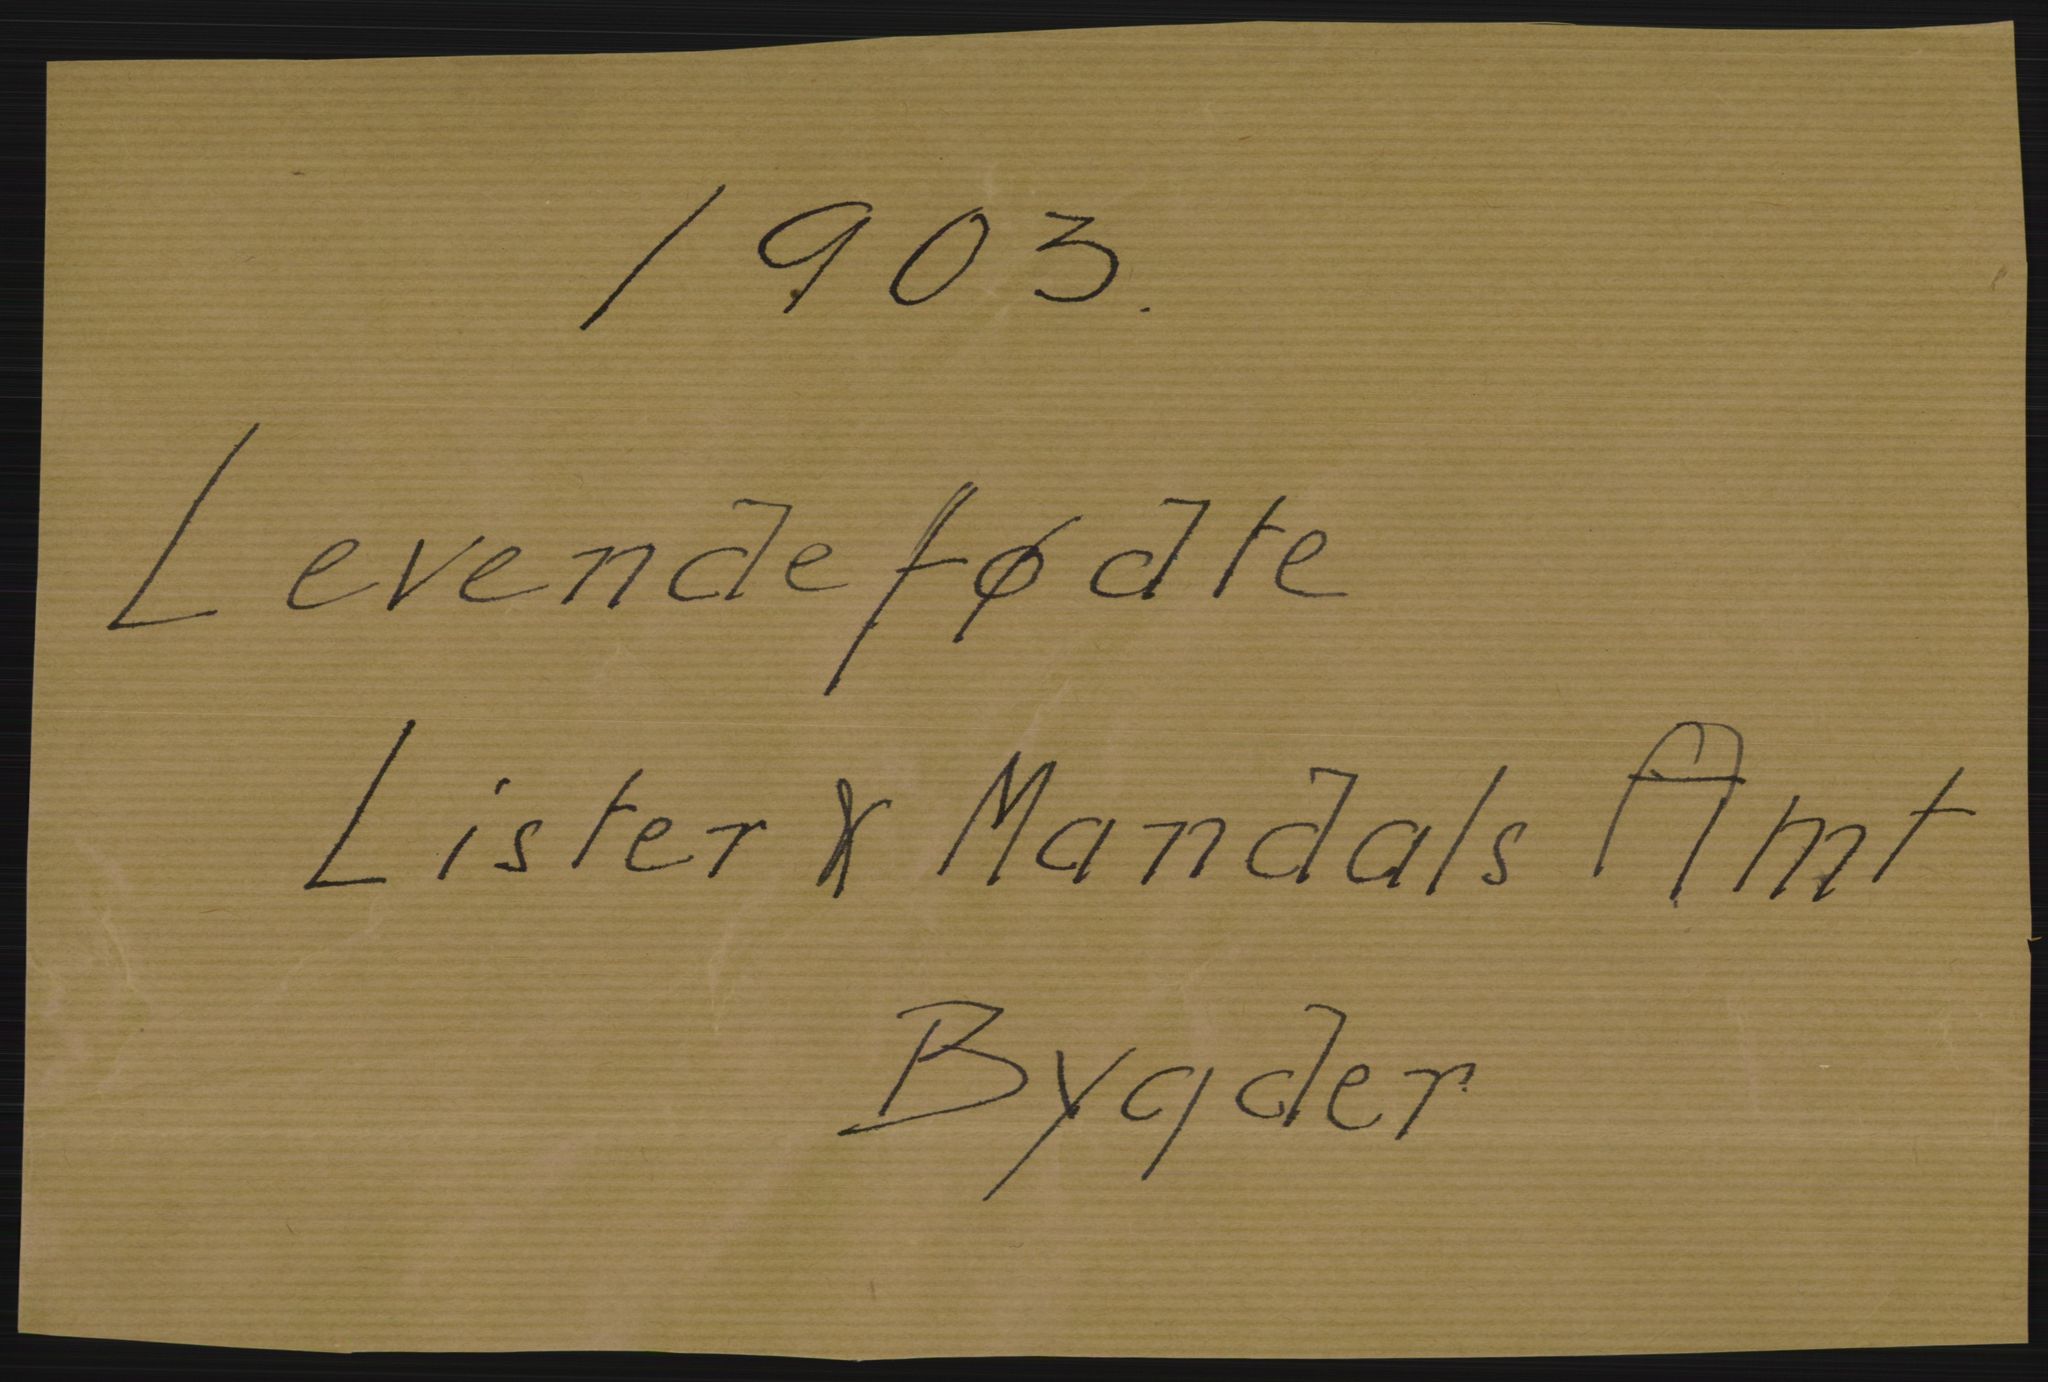 1903.
Levendefødte
Lister & Mandals Amt
Bygder